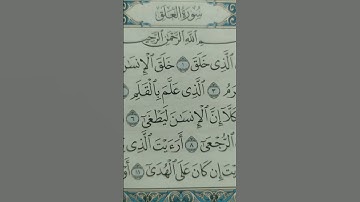 سُورَةُ العَلَق
بِسْمِ اللَّهِ الرَّحْمَٰنِ الرَّحِيمِ
الَّذِي خَلَقَ ١ خَلَقَ الْإِنسَانَ
٣ الَّذِي عَلَّمَ بِالْقَلَمِ
كَلَّا إِنَّ الْإِنسَانَ لَيَطْغَىٰ ٦
الرُّجْعَىٰ ٨ أَرَأَيْتَ الَّذِي
إِن كَانَ عَلَى الْهُدَىٰ ١١